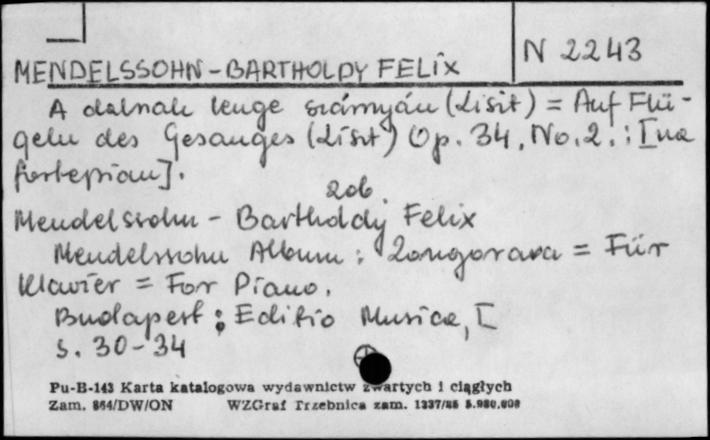 N 2243
MENDELSSOHN-BARTHOLDY FELIX
A dalnak lenge szárnyán (Liszt) = Auf Flü-
geln des Gesanges (Liszt) Op. 34, No. 2. : [na
fortepian].
zob.
Mendelssohn - Bartholdy Felix
Mendelssohn Album : Zongorara = Für
Klavier = For Piano.
Budapest : Editio Musica, [
s. 30-34
Pu-B-143 Karta katalogowa wydawnictw zwartych i ciągłych
Zam. 864/DW/ON WZGraf Trzebnica zam. 1337/88 5.980.000